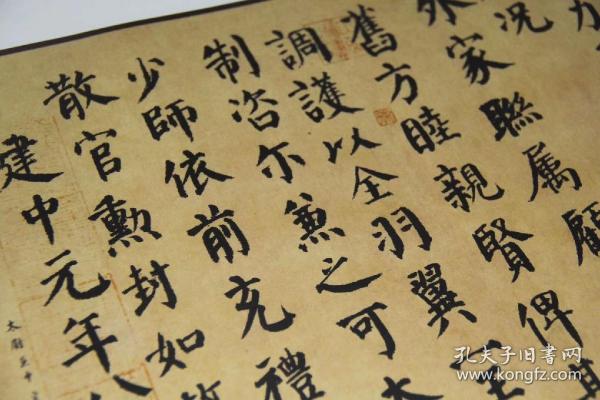 况
外家聯属顧
舊方睦親賢俾其
調護以全羽翼
制咨尔兼之可太
少師依前充禮
散官勳封如故
建中元年八
孔夫子旧书网
www.kongfz.com